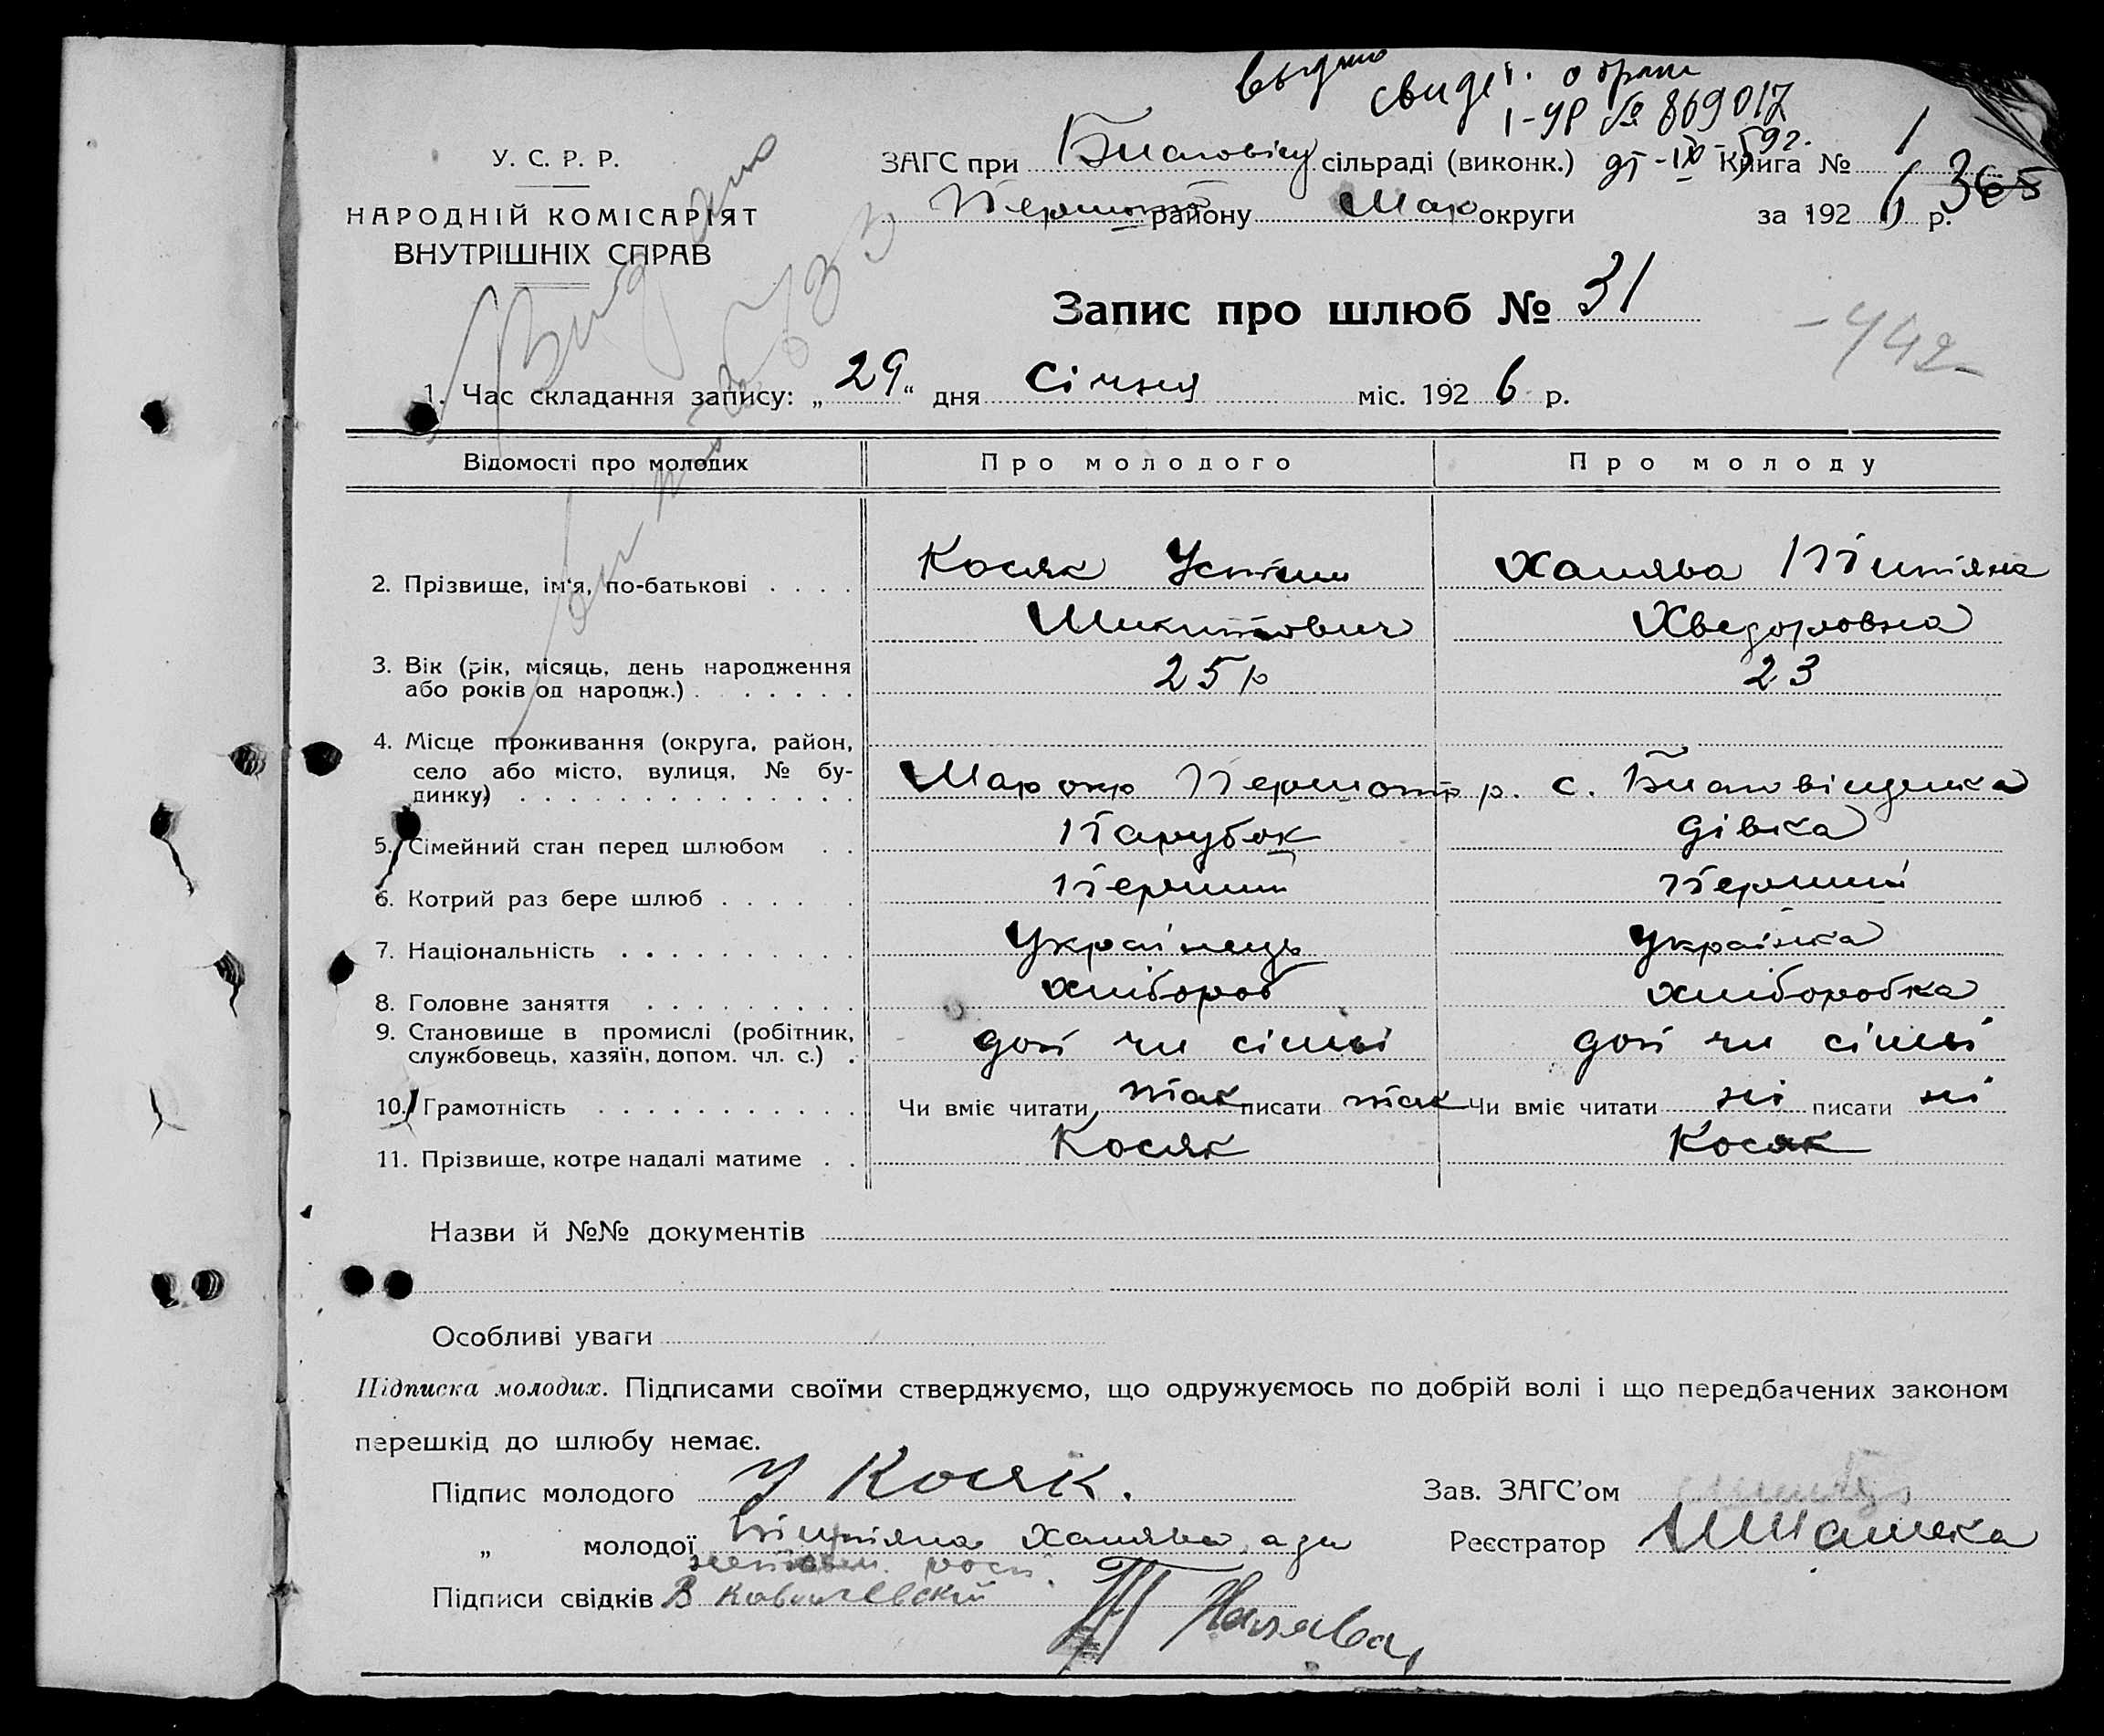 выдано
свидет. о браке
І-УР № 869017
У. С. Р. Р.
ЗАГС при Благовіщ сільраді (виконк.) Книга № 1
365
НАРОДНІЙ КОМІСАРІЯТ
ВНУТРІШНІХ СПРАВ
Першот району Мар округи за 1926 р.
Запис про шлюб № 31
-742-
1. Час складання запису: „29“ дня Січня міс. 1926 р.
Відомості про молодих Про молодого Про молоду
2. Прізвище, ім'я, по-батькові Косяк Устим Ханява Титяна
Микитович Хведоровна
3. Вік (рік, місяць, день народження
або років од нарοдж.) 25 р 23
4. Місце проживання (округа, район,
село або місто, вулиця, № бу-
динку) Мар окр Першотр р. с. Благовіщенка
5. Сімейний стан перед шлюбом Парубок дівка
6. Котрий раз бере шлюб Перший Перший
7. Національність Українець Українка
8. Головне заняття хлібороб хліборобка
9. Становище в промислі (робітник,
службовець, хазяїн, допом. чл. с.) доп чл сімьі доп чл сімьі
10. Грамотність Чи вміє читати так писати так Чи вміє читати ні писати ні
11. Прізвище, котре надалі матиме Косяк Косяк
Назви й №№ документів
Особливі уваги
Підписка молодих. Підписами своїми стверджуємо, що одружуємось по добрій волі і що передбачених законом
перешкід до шлюбу немає.
Підпис молодого У Косяк. Зав. ЗАГС'ом
„ молодої Ханява, а за Реєстратор
Підписи свідків В Ханява